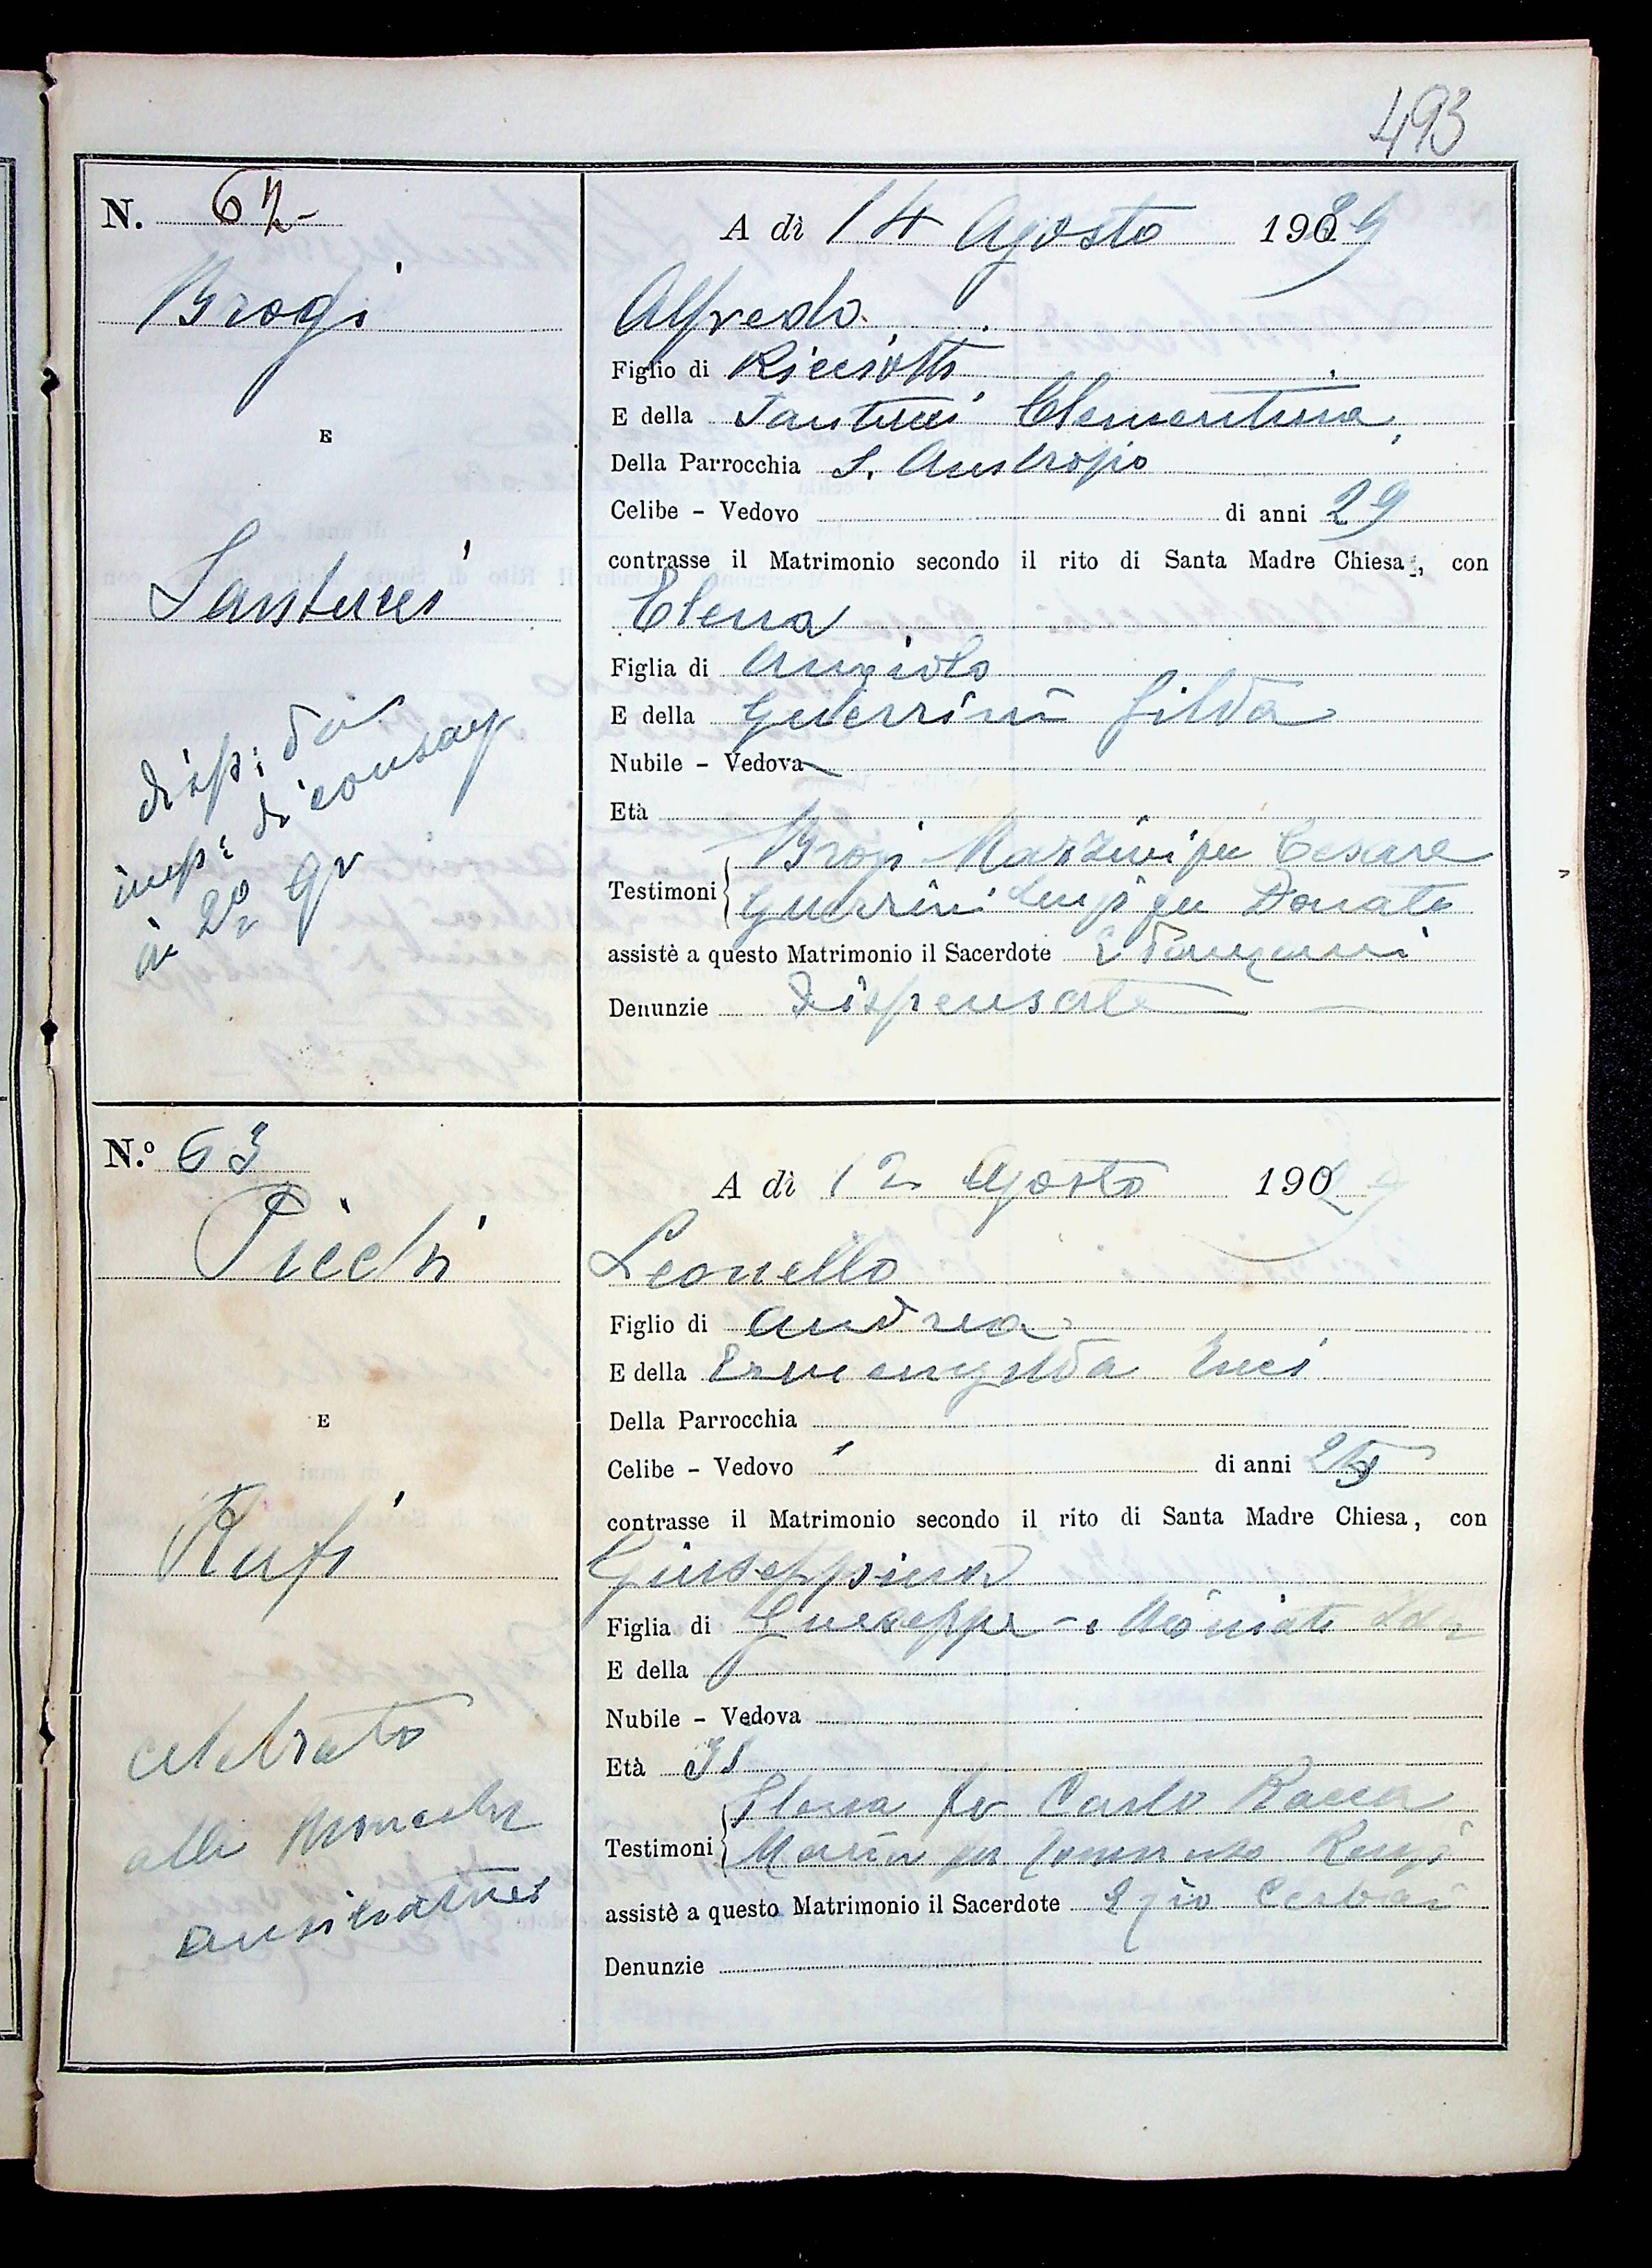 493
N. 62-
A dì 14 Agosto 1929
Brogi
Alfredo
Figlio di Ricciotti
E della Santucci Clementina
E
Della Parrocchia S. Austropio
Celibe - Vedovo di anni 29
contrasse il Matrimonio secondo il rito di Santa Madre Chiesa, con
Santucci
Elena
Figlia di Angiolo
E della Guerrini Gilda
Nubile - Vedova
disp: da
imp: di consag
in 2º gr
Età
Testimoni Brogi Mazzini fu Cesare
Guerrini Luigi fu Donato
assistè a questo Matrimonio il Sacerdote
Denunzie Dispensate
N.º 63
A dì 12 Agosto 1929
Picchi
Leonello
Figlio di Andrea
E della Ermengilda
E
Della Parrocchia
Celibe - Vedovo di anni
contrasse il Matrimonio secondo il rito di Santa Madre Chiesa, con
Rufi
Giuseppina
Figlia di Giuseppe e
E della
Nubile - Vedova
Età
celebrato
alle Monache
Testimoni fu Carlo
Maria fu
assistè a questo Matrimonio il Sacerdote Ezio Cerbai
Denunzie